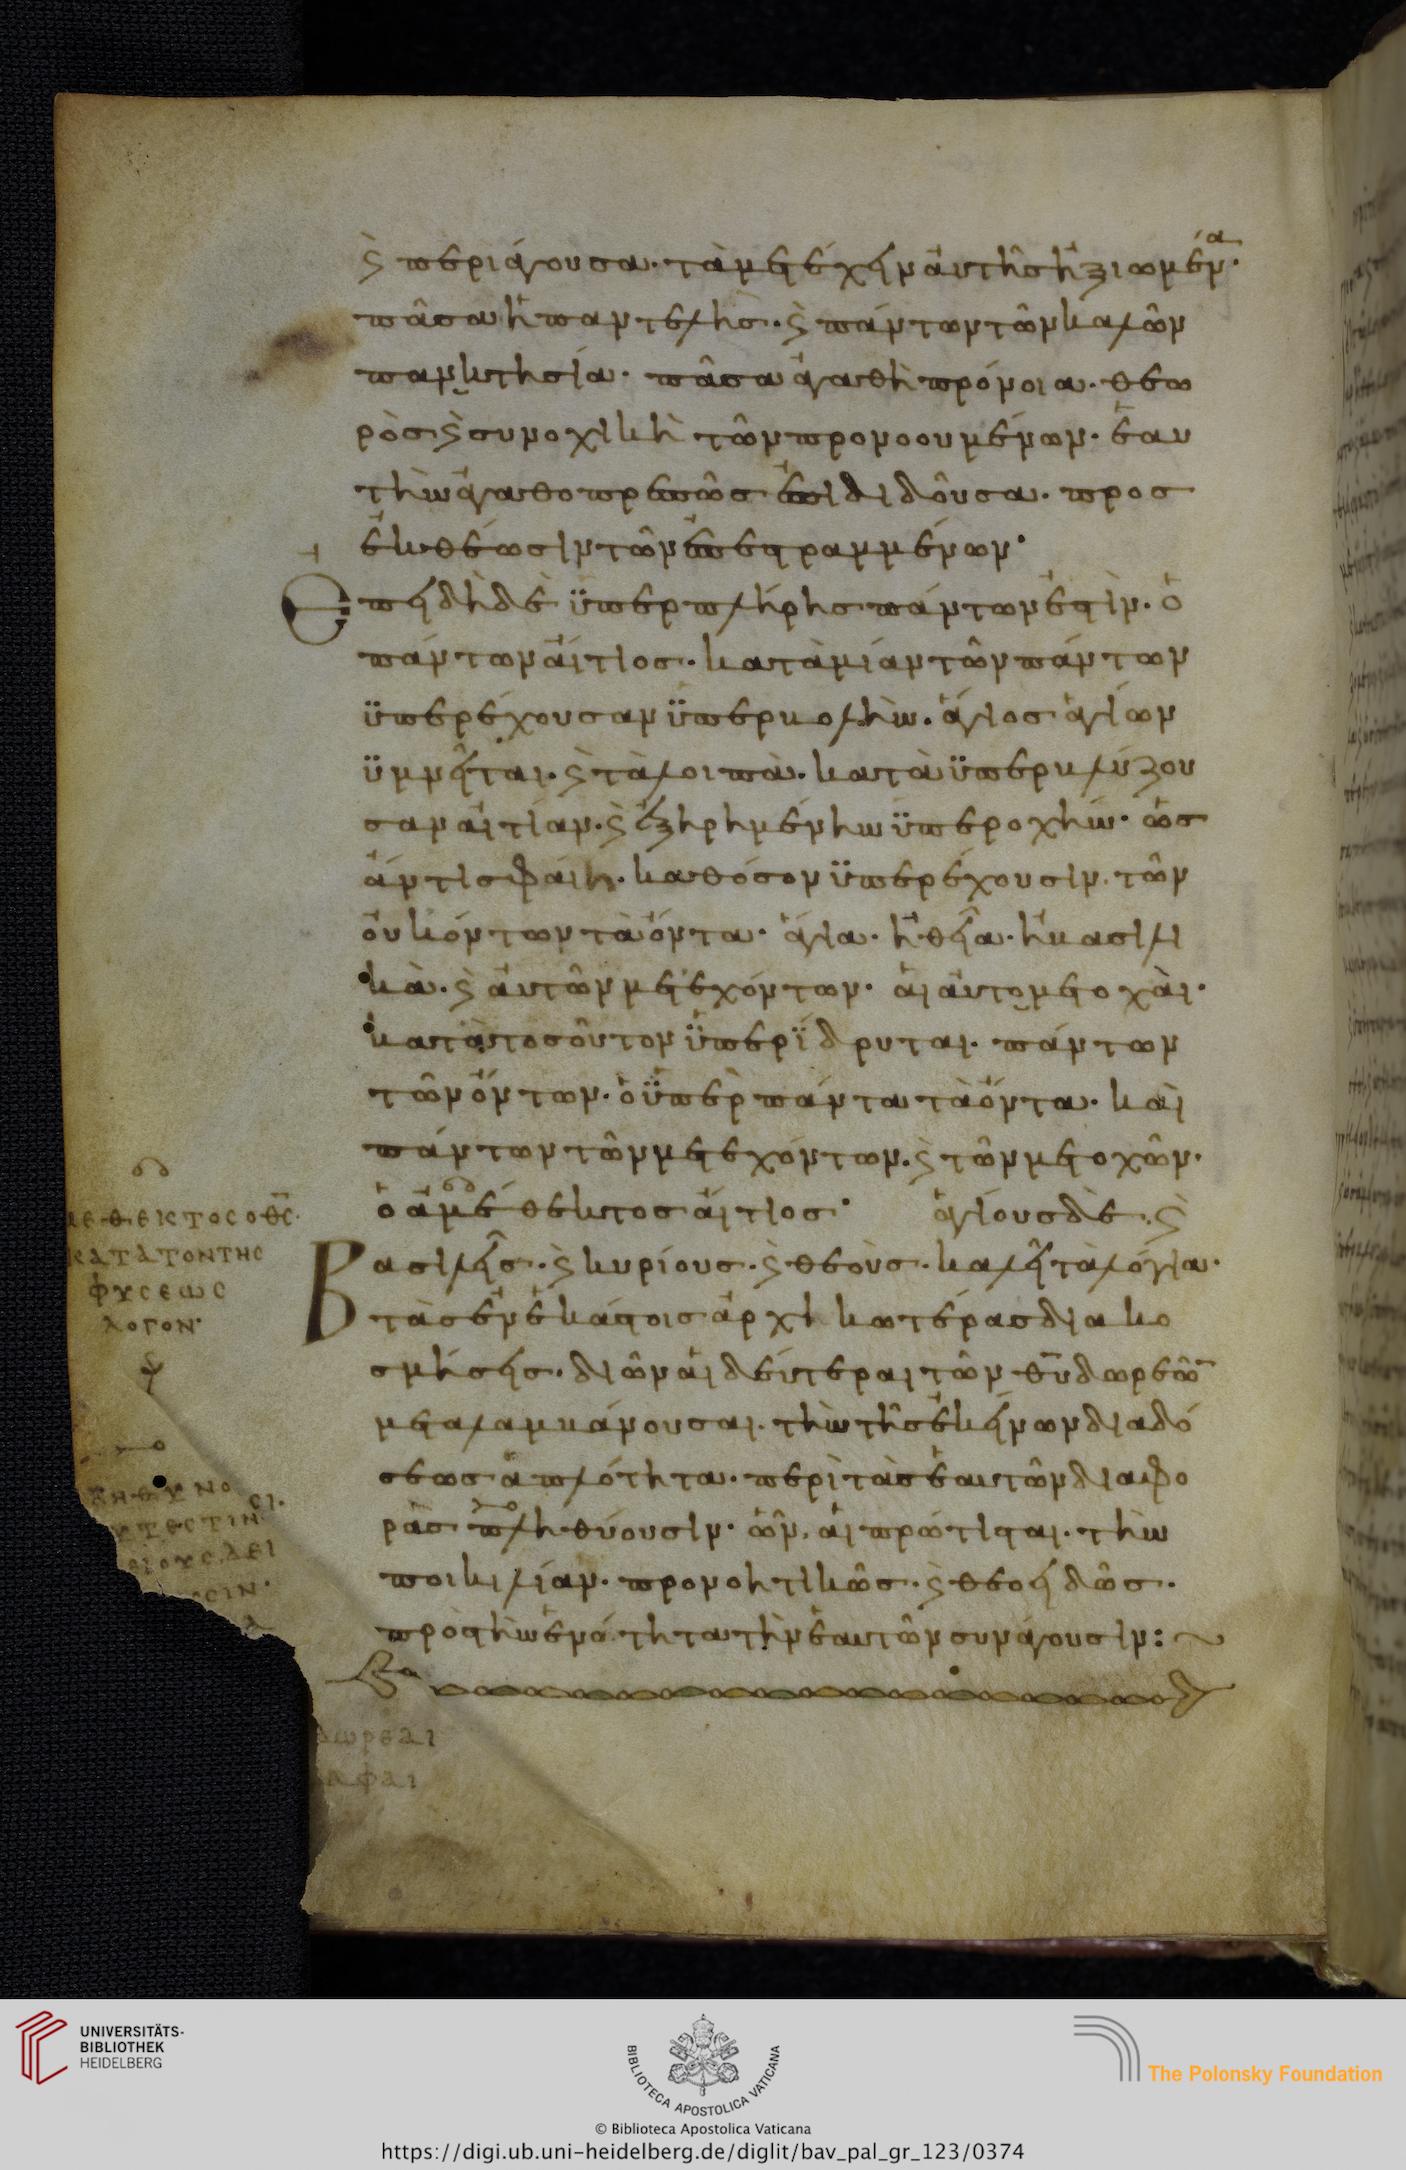 ϗ̀ περιάγουσα· τὰ μετέχειν αὐτῆς ἠξιωμέν́α·
πᾶσα ἡ παντελὴς· ϗ̀ πάντων τῶν καλῶν
παγκτησία· πᾶσα ἀγαθὴ πρόνοια· θεω
ρὸς ϗ̀ συνοχικὴ τῶν προνοουμένων· ἑαυ
τὴν ἀγαθοπρεπῶς ἐπιδιδοῦσα· προσ
ἐκθέωσιν τῶν ἐπεστραμμένων·
Ἐπειδὴ δὲ ὑπερπλήρης πάντων ἐστὶν· ὁ
πάντων αἴτιος· κατὰ μίαν τῶν πάντων
ὑπερέχουσαν ὑπερβολὴν· ἅγιος ἁγίων
ὑμνεῖται· ϗ̀ τὰ λοιπὰ· κατὰ ὑπερβλύζου
σαν αἰτίαν· ϗ̀ ἐξηρημένην ὑπεροχήν· ὡς
ἄν τις φαίη· καθόσον ὑπερέχουσιν τῶν
οὐκ όντων τὰ ὄντα· ἅγια· ἢ θεῖα· ἢ βασιλι
κὰ· ϗ̀ αὐτῶν μετεχόντων· αἱ αὐτομετοχὰι·
κατὰ τοσοῦτον ὑπερΐδρυται· πάντων
τῶν ὄντων· ὁ ὑπὲρ πάντα τὰ ὄντα· καὶ
πάντων τῶν μετεχόντων· ϗ̀ τῶν μετοχῶν·
ὁ ἀμέθεκτος αἴτιος· ἁγίους δὲ· ϗ̀
Βασιλεῖς· ϗ̀ κυρίους· ϗ̀ θεοὺς· καλεῖ τὰ λόγια·
τὰς ἐν ἑκάστοις ἀρχικωτέρας διακο
σμήσεις· δι ὧν αἱ δεύτεραι τῶν θῡ δωρεῶν
μεταλαμβάνουσαι· τὴν τῆς ἐκείνων διαδό
σεως ἁπλότητα· περὶ τὰς ἑαυτῶν διαφο
ρὰς πληθύουσιν· ὧν, αἱ πρώτισται· τὴν
ποικιλίαν· προνοητικῶς· ϗ̀ θεοειδῶς·
πρὸς τὴν ἑνότητα τὴν ἑαυτῶν συνάγουσιν:
ΜΕΘΕΚΤΟϹ Ο ΘϹ·
ΚΑΤΑ ΤΟΝ ΤΗϹ
ΦΥϹΕΩϹ
ΛΟΓΟΝ·
ΔΩΡΕΑΙ
UNIVERSITÄTS-
BIBLIOTHEK
HEIDELBERG
BIBLIOTECA APOSTOLICA VATICANA
© Biblioteca Apostolica Vaticana
The Polonsky Foundation
https://digi.ub.uni-heidelberg.de/diglit/bav_pal_gr_123/0374